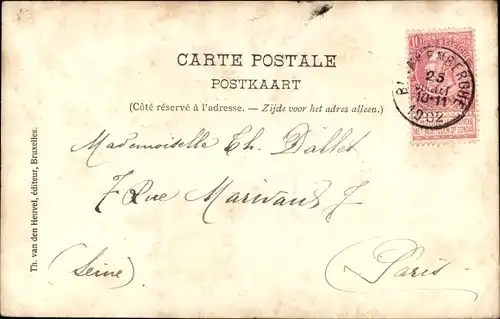 CARTE POSTALE
POSTKAART
(Côté réservé à l'adresse. — Zijds voor het adres alleen.)
BLANKENBERGHE
25
JUIL
10-11
1902
10
Mademoiselle Th. Dallet
7 Rue Marivaux 7
(Seine) Paris
Th. van den Heuvel, éditeur, Bruxelles.